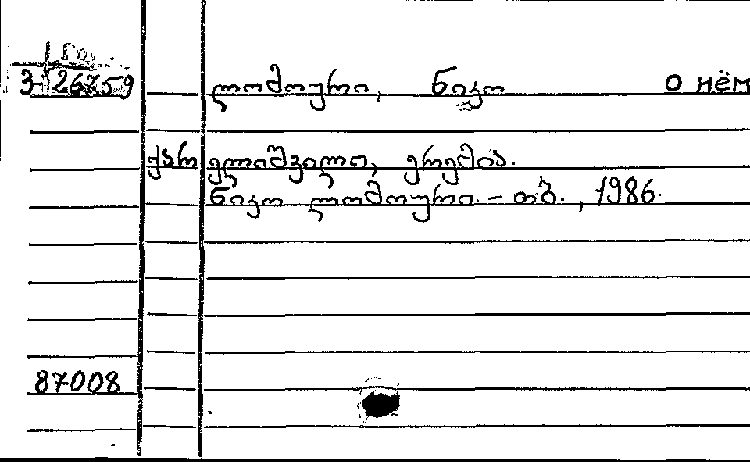 3-26759
ლომოური, ნიკო о нём
ქართველიშვილი, ერემია.
ნიკო ლომოური. – თბ., 1986.
87008